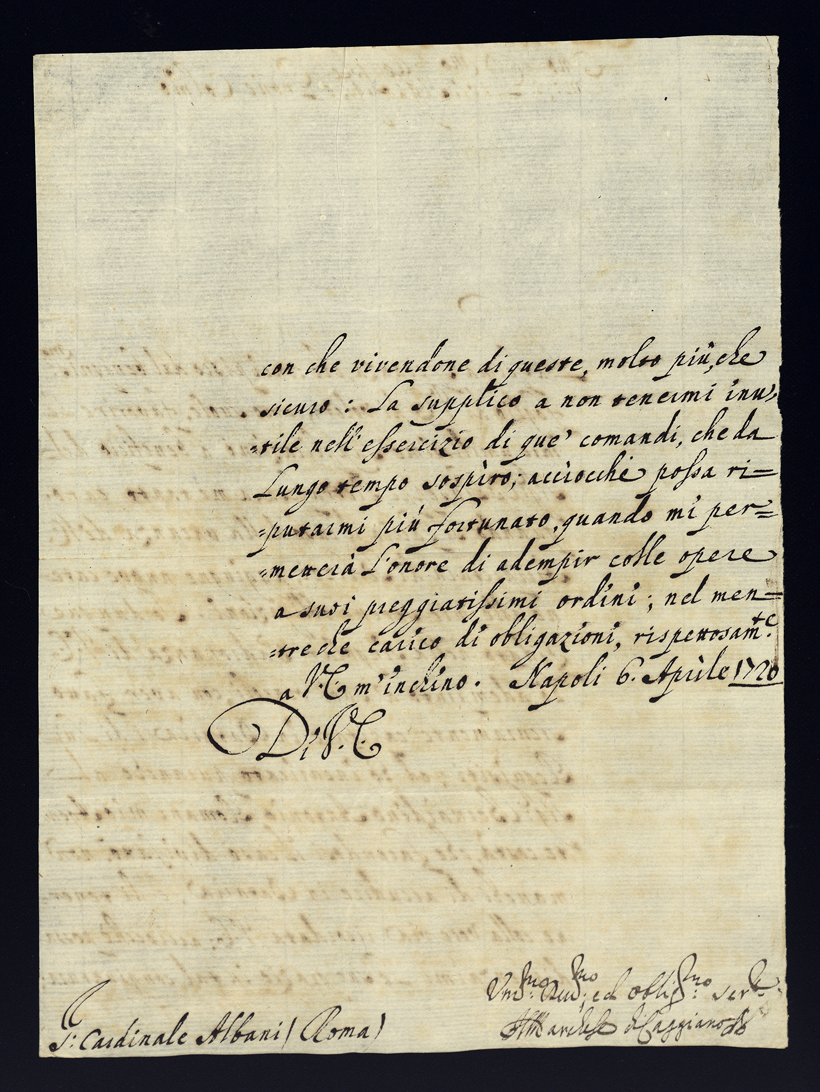 con che vivendone di queste, molto più, che
sicuro : La supplico a non tenermi inu=
=tile nell'essercizio di que' comandi, che da
Lungo tempo sospiro; acciocchè possa ri=
=putarmi più fortunato, quando mi per=
=metterà L'onore di adempir colle opere
a suoi preggiatissimi ordini ; nel men=
=tre che carico di obligazioni, rispettosam.te
a V.E. m'inchino. Napoli 6. Aprile 1720
Di V.E.
Um.mo Div.mo ed oblig.mo ser.re
Il Marchese di Caggiano
S: Cardinale Albani (Roma)